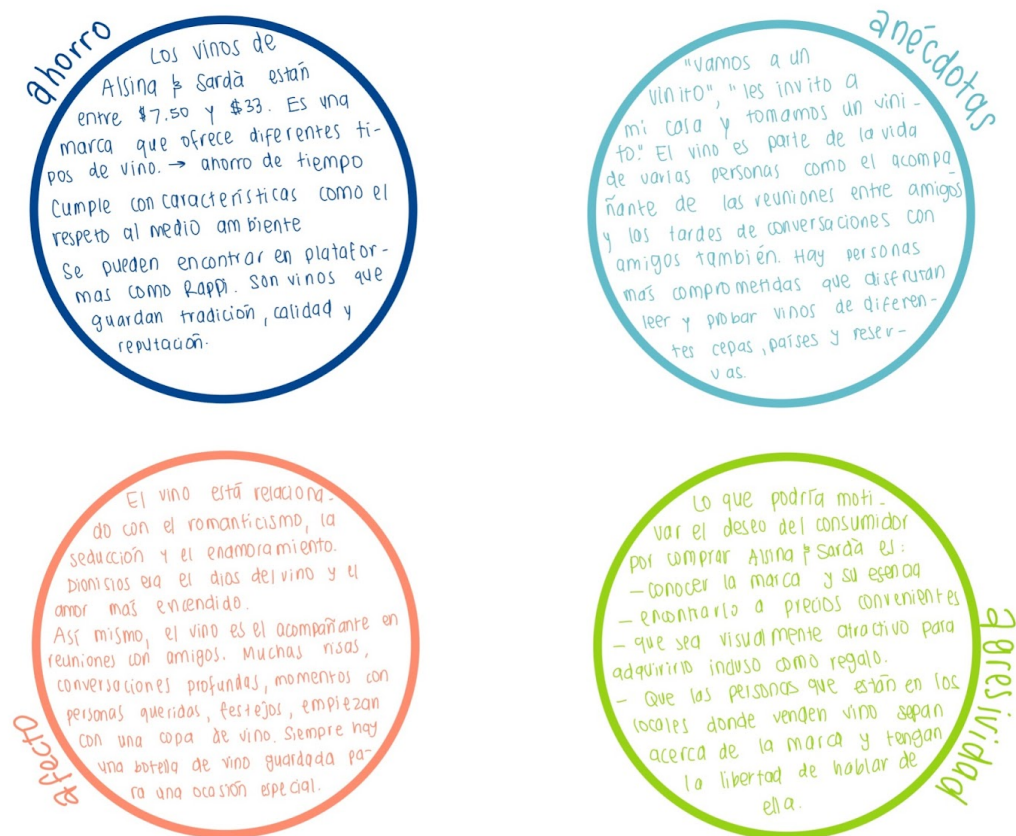 ahorro
Los vinos de
Alsina & Sardà están
entre $7.50 y $33. Es una
marca que ofrece diferentes ti-
pos de vino. → ahorro de tiempo
Cumple con características como el
respeto al medio ambiente
Se pueden encontrar en platafor-
mas como Rappi. Son vinos que
guardan tradición, calidad y
reputación.
anécdotas
"Vamos a un
vinito", "les invito a
mi casa y tomamos un vini-
to." El vino es parte de la vida
de varias personas como el acompa
ñante de las reuniones entre amigos
y las tardes de conversaciones con
amigos también. Hay personas
más comprometidas que disfrutan
leer y probar vinos de diferen-
tes cepas, países y reser-
vas.
afecto
El vino está relaciona-
do con el romanticismo, la
seducción y el enamoramiento.
Dionisios era el dios del vino y el
amor más encendido.
Así mismo, el vino es el acompañante en
reuniones con amigos. Muchas risas,
conversaciones profundas, momentos con
personas queridas, festejos, empiezan
con una copa de vino. Siempre hay
una botella de vino guardada pa-
ra una ocasión especial.
agresividad
Lo que podría moti-
var el deseo del consumidor
por comprar Alsina & Sardà es:
- conocer la marca y su esencia
- encontrarlo a precios convenientes
- que sea visualmente atractivo para
adquirirlo incluso como regalo.
- Que las personas que están en los
locales donde venden vino sepan
acerca de la marca y tengan
la libertad de hablar de
ella.